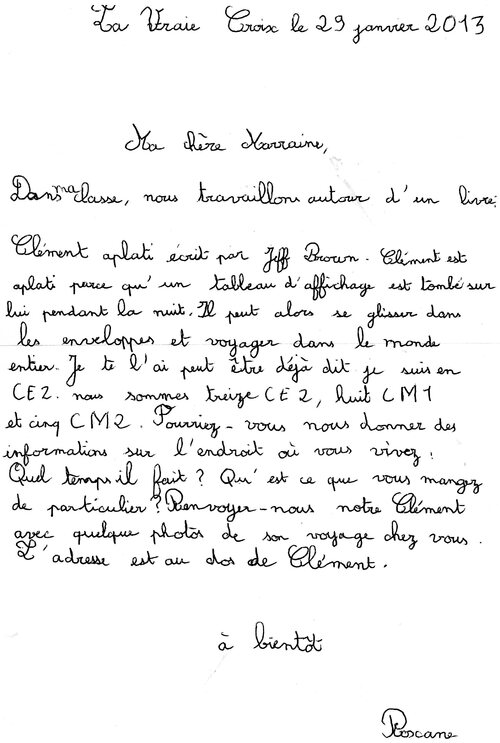 La Vraie Croix le 29 janvier 2013
Ma chère Marraine,
Dans ma classe, nous travaillons autour d'un livre:
Clément aplati écrit par Jeff Brown. Clément est
aplati parce qu'un tableau d'affichage est tombé sur
lui pendant la nuit. Il peut alors se glisser dans
les enveloppes et voyager dans le monde
entier. Je te l'ai peut être déjà dit je suis en
CE2. nous sommes treize CE2, huit CM1
et cinq CM2. Pourriez-vous nous donner des
informations sur l'endroit où vous vivez:
Quel temps il fait ? Qu'est ce que vous mangez
de particulier ? Renvoyer-nous notre Clément
avec quelque photos de son voyage chez vous.
L'adresse est au dos de Clément.
à bientôt
Roscane